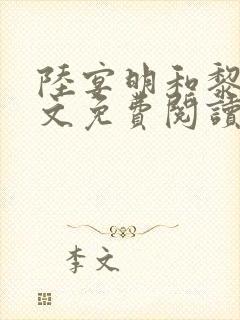 陸宴明和黎
文免費閱讀
李文